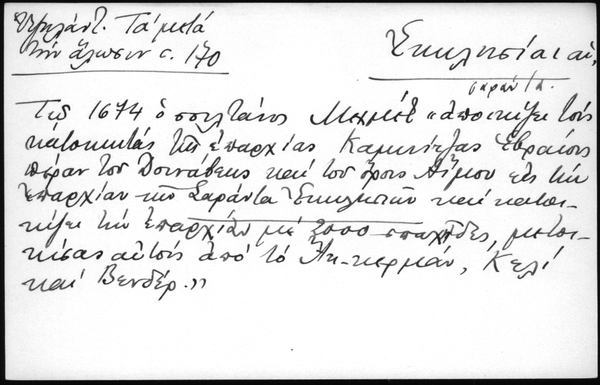 Ὑψηλάντ. Τὰ μετὰ
τὴν ἅλωσιν σ. 170
Ἐκκλησίαι αἱ
σαράντα.
Τῷ 1674 ὁ σουλτάνος Μεχμὲτ «ἀποικίζει τοὺς
κατοικητὰς τῆς ἐπαρχίας Καμενίτζας Ἑβραίους
πέραν τοῦ Δουνάβεως καὶ τοῦ ὄρους Αἵμου εἰς τὴν
ἐπαρχίαν τῶν Σαράντα Ἐκκλησιῶν καὶ κατοι-
κίζει τὴν ἐπαρχίαν μὲ 3000 σπαχῆδες, μετοι-
κίσας αὐτοὺς ἀπὸ τὸ Ἀκ-κερμάν, Κελὶ
καὶ Βενδέρ.»